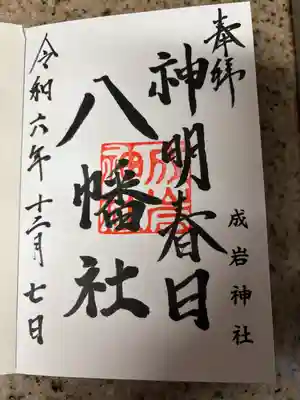 奉拝
神明春日
成岩神社
八幡社
令和六年十二月七日